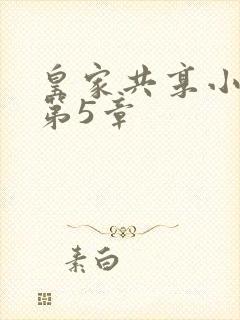 皇家共享小
第5章
素白